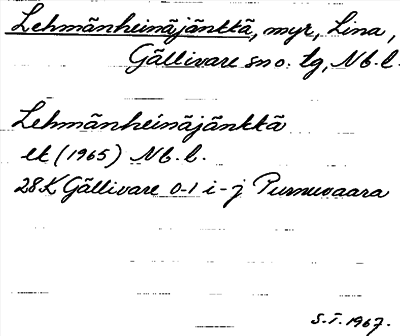 Lehmänheinäjänttä, myr, Lina,
Gällivare sn o. tg, Nb. l.
Lehmänheinäjänkkä
ek (1965) Nb. l.
28K Gällivare 0-1 i-j Purnuvaara
S.I. 1967.